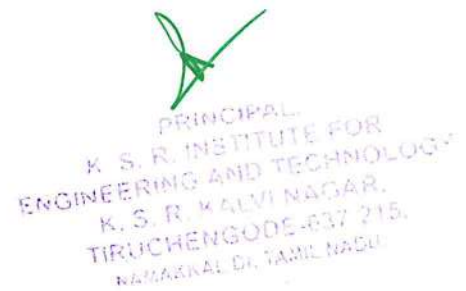 PRINCIPAL,
K. S. R. INSTITUTE FOR
ENGINEERING AND TECHNOLOGY
K. S. R. KALVI NAGAR,
TIRUCHENGODE-637 215.
NAMAKKAL Dt. TAMIL NADU.